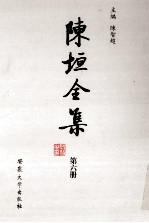 主编 陳智超
陳垣全集
第六册
安徽大學出版社